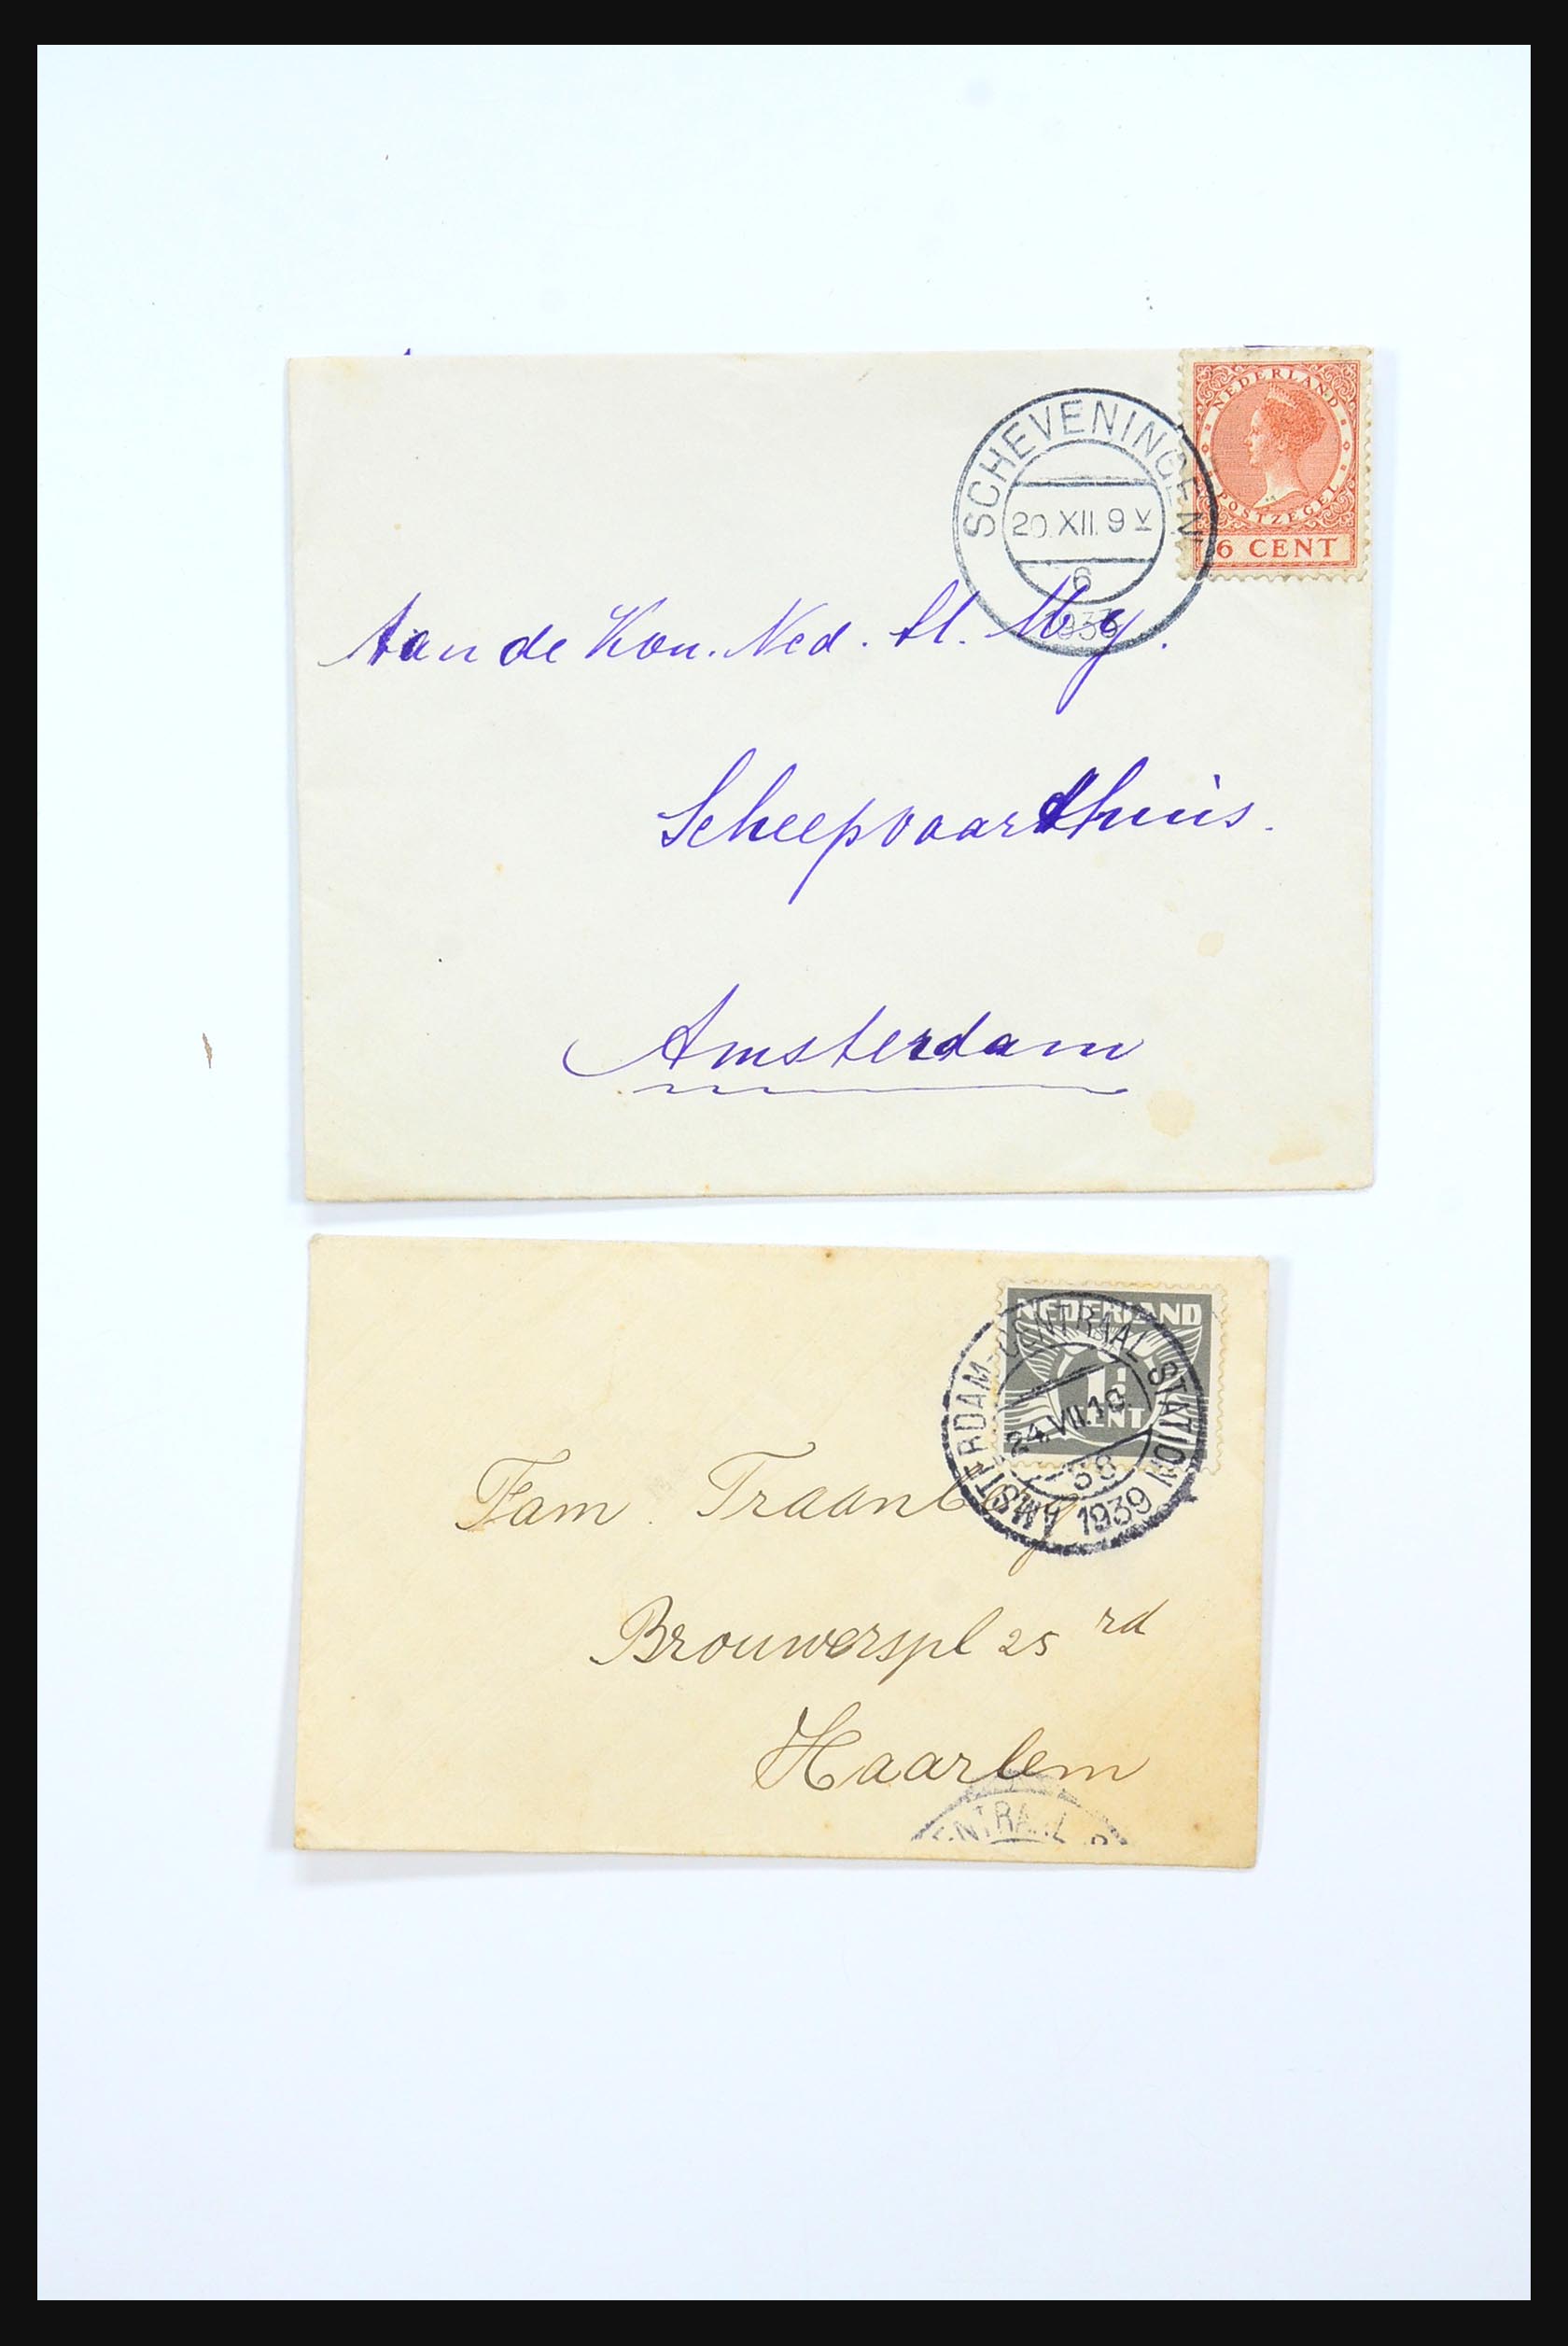 NEDERLAND
POSTZEGEL
6 CENT
SCHEVENINGEN
20.XII.9 V
6
Aan de Kon. Ned. St. My.
Scheepvaarthuis.
Amsterdam
NEDERLAND
1½
CENT
AMSTERDAM-CENTRAAL STATION
24.VII.18
38
1939
Fam.
Brouwerspl 25 rd
Haarlem